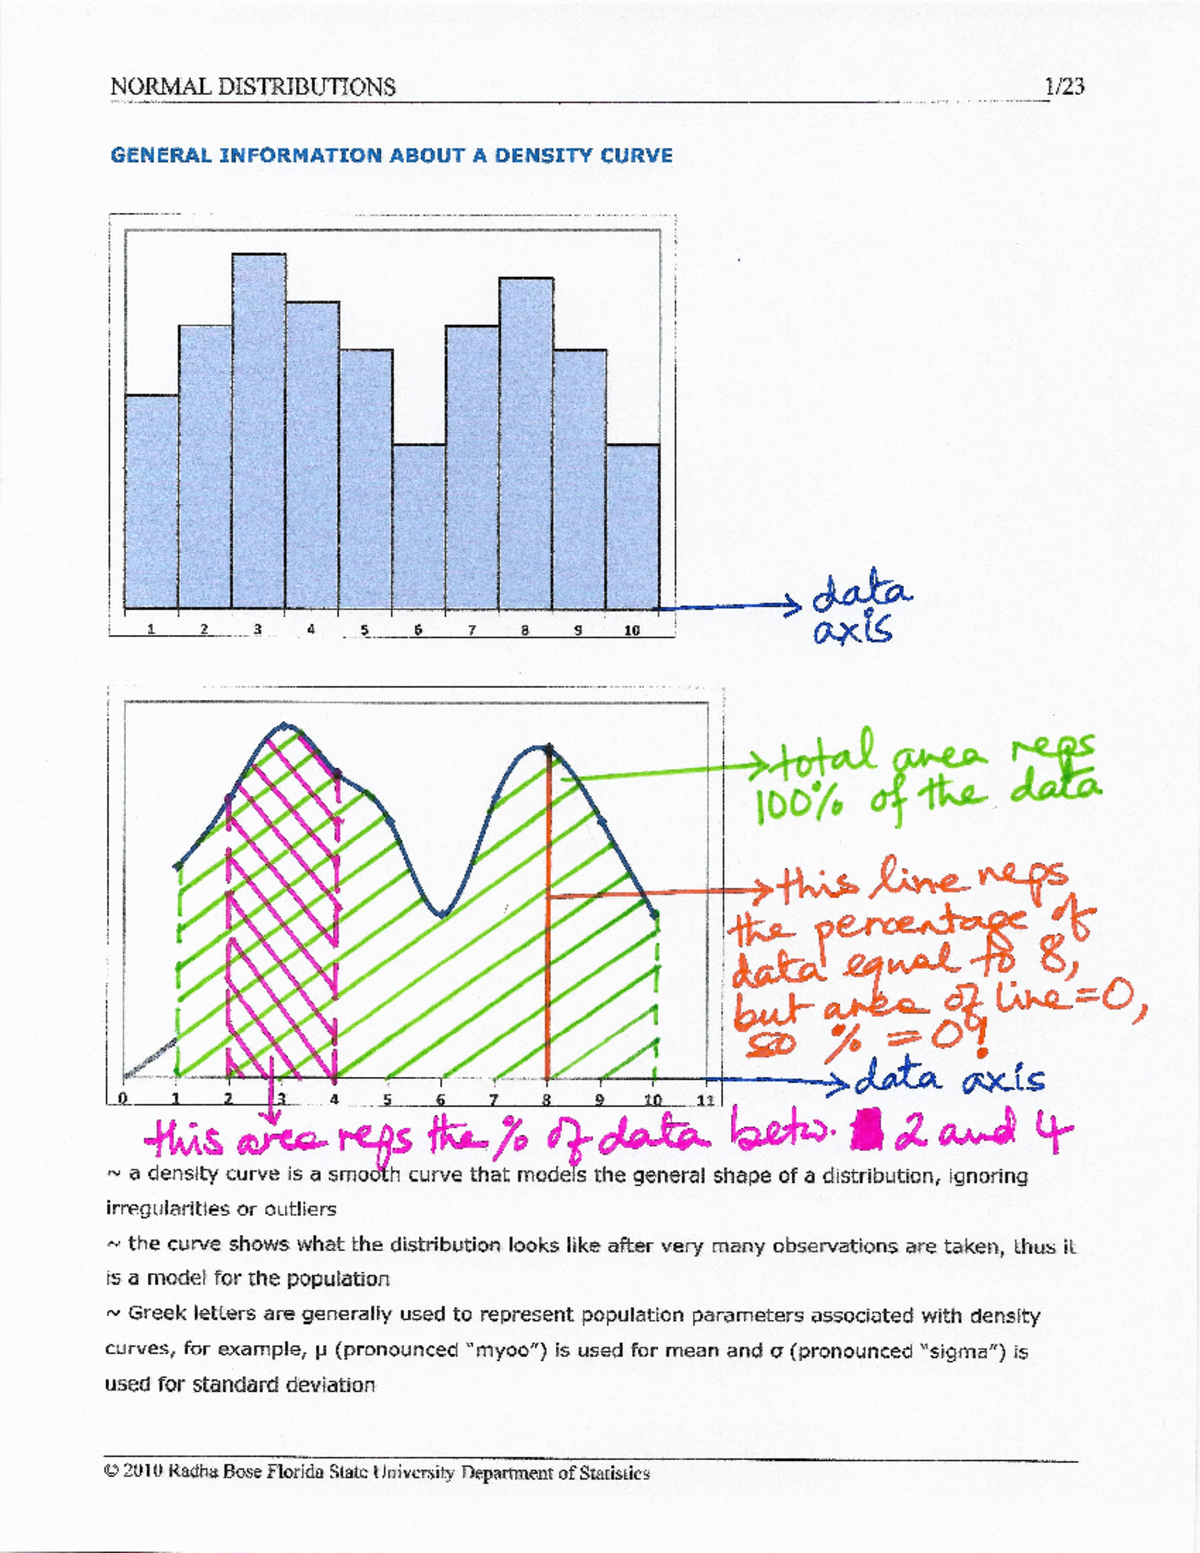 NORMAL DISTRIBUTIONS 1/23
GENERAL INFORMATION ABOUT A DENSITY CURVE
1 2 3 4 5 6 7 8 9 10
data
axis
total area reps
100% of the data
this line reps
the percentage of
data equal to 8,
but area of line=0,
so % = 0!
data axis
0 1 2 3 4 5 6 7 8 9 10 11
this area reps the % of data betw. 2 and 4
~ a density curve is a smooth curve that models the general shape of a distribution, ignoring
irregularities or outliers
~ the curve shows what the distribution looks like after very many observations are taken, thus it
is a model for the population
~ Greek letters are generally used to represent population parameters associated with density
curves, for example, μ (pronounced "myoo") is used for mean and σ (pronounced "sigma") is
used for standard deviation
© 2010 Radha Bose Florida State University Department of Statistics